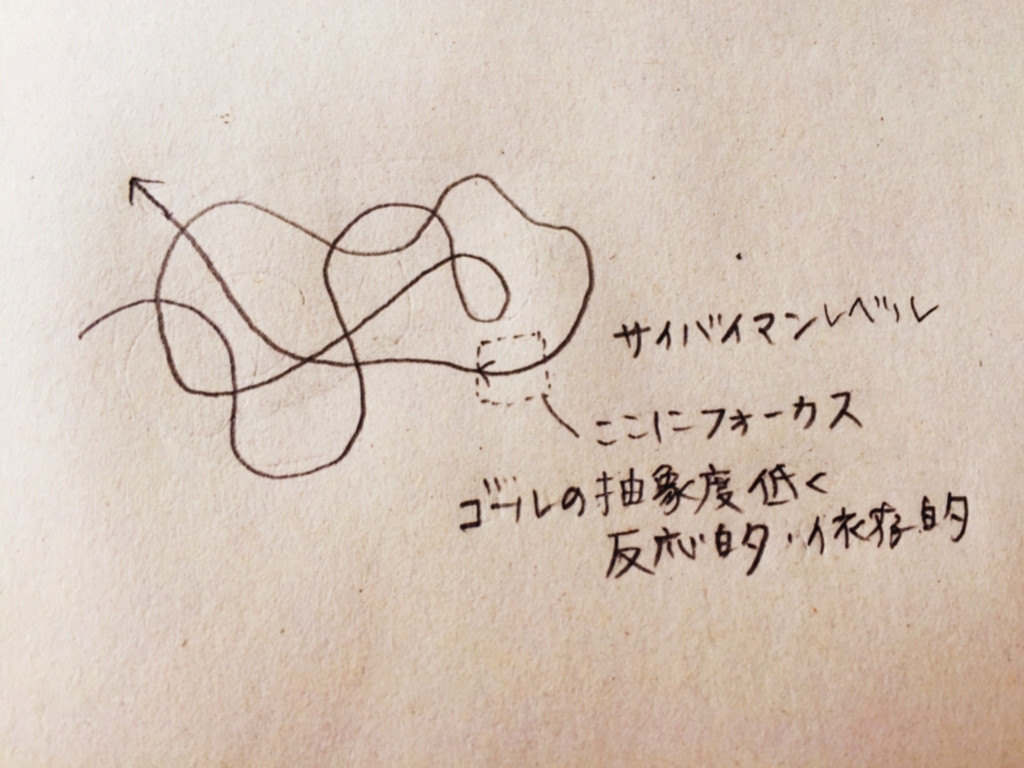 サイバイマンレベル
ここにフォーカス
ゴールの抽象度低く
反応的・依存的